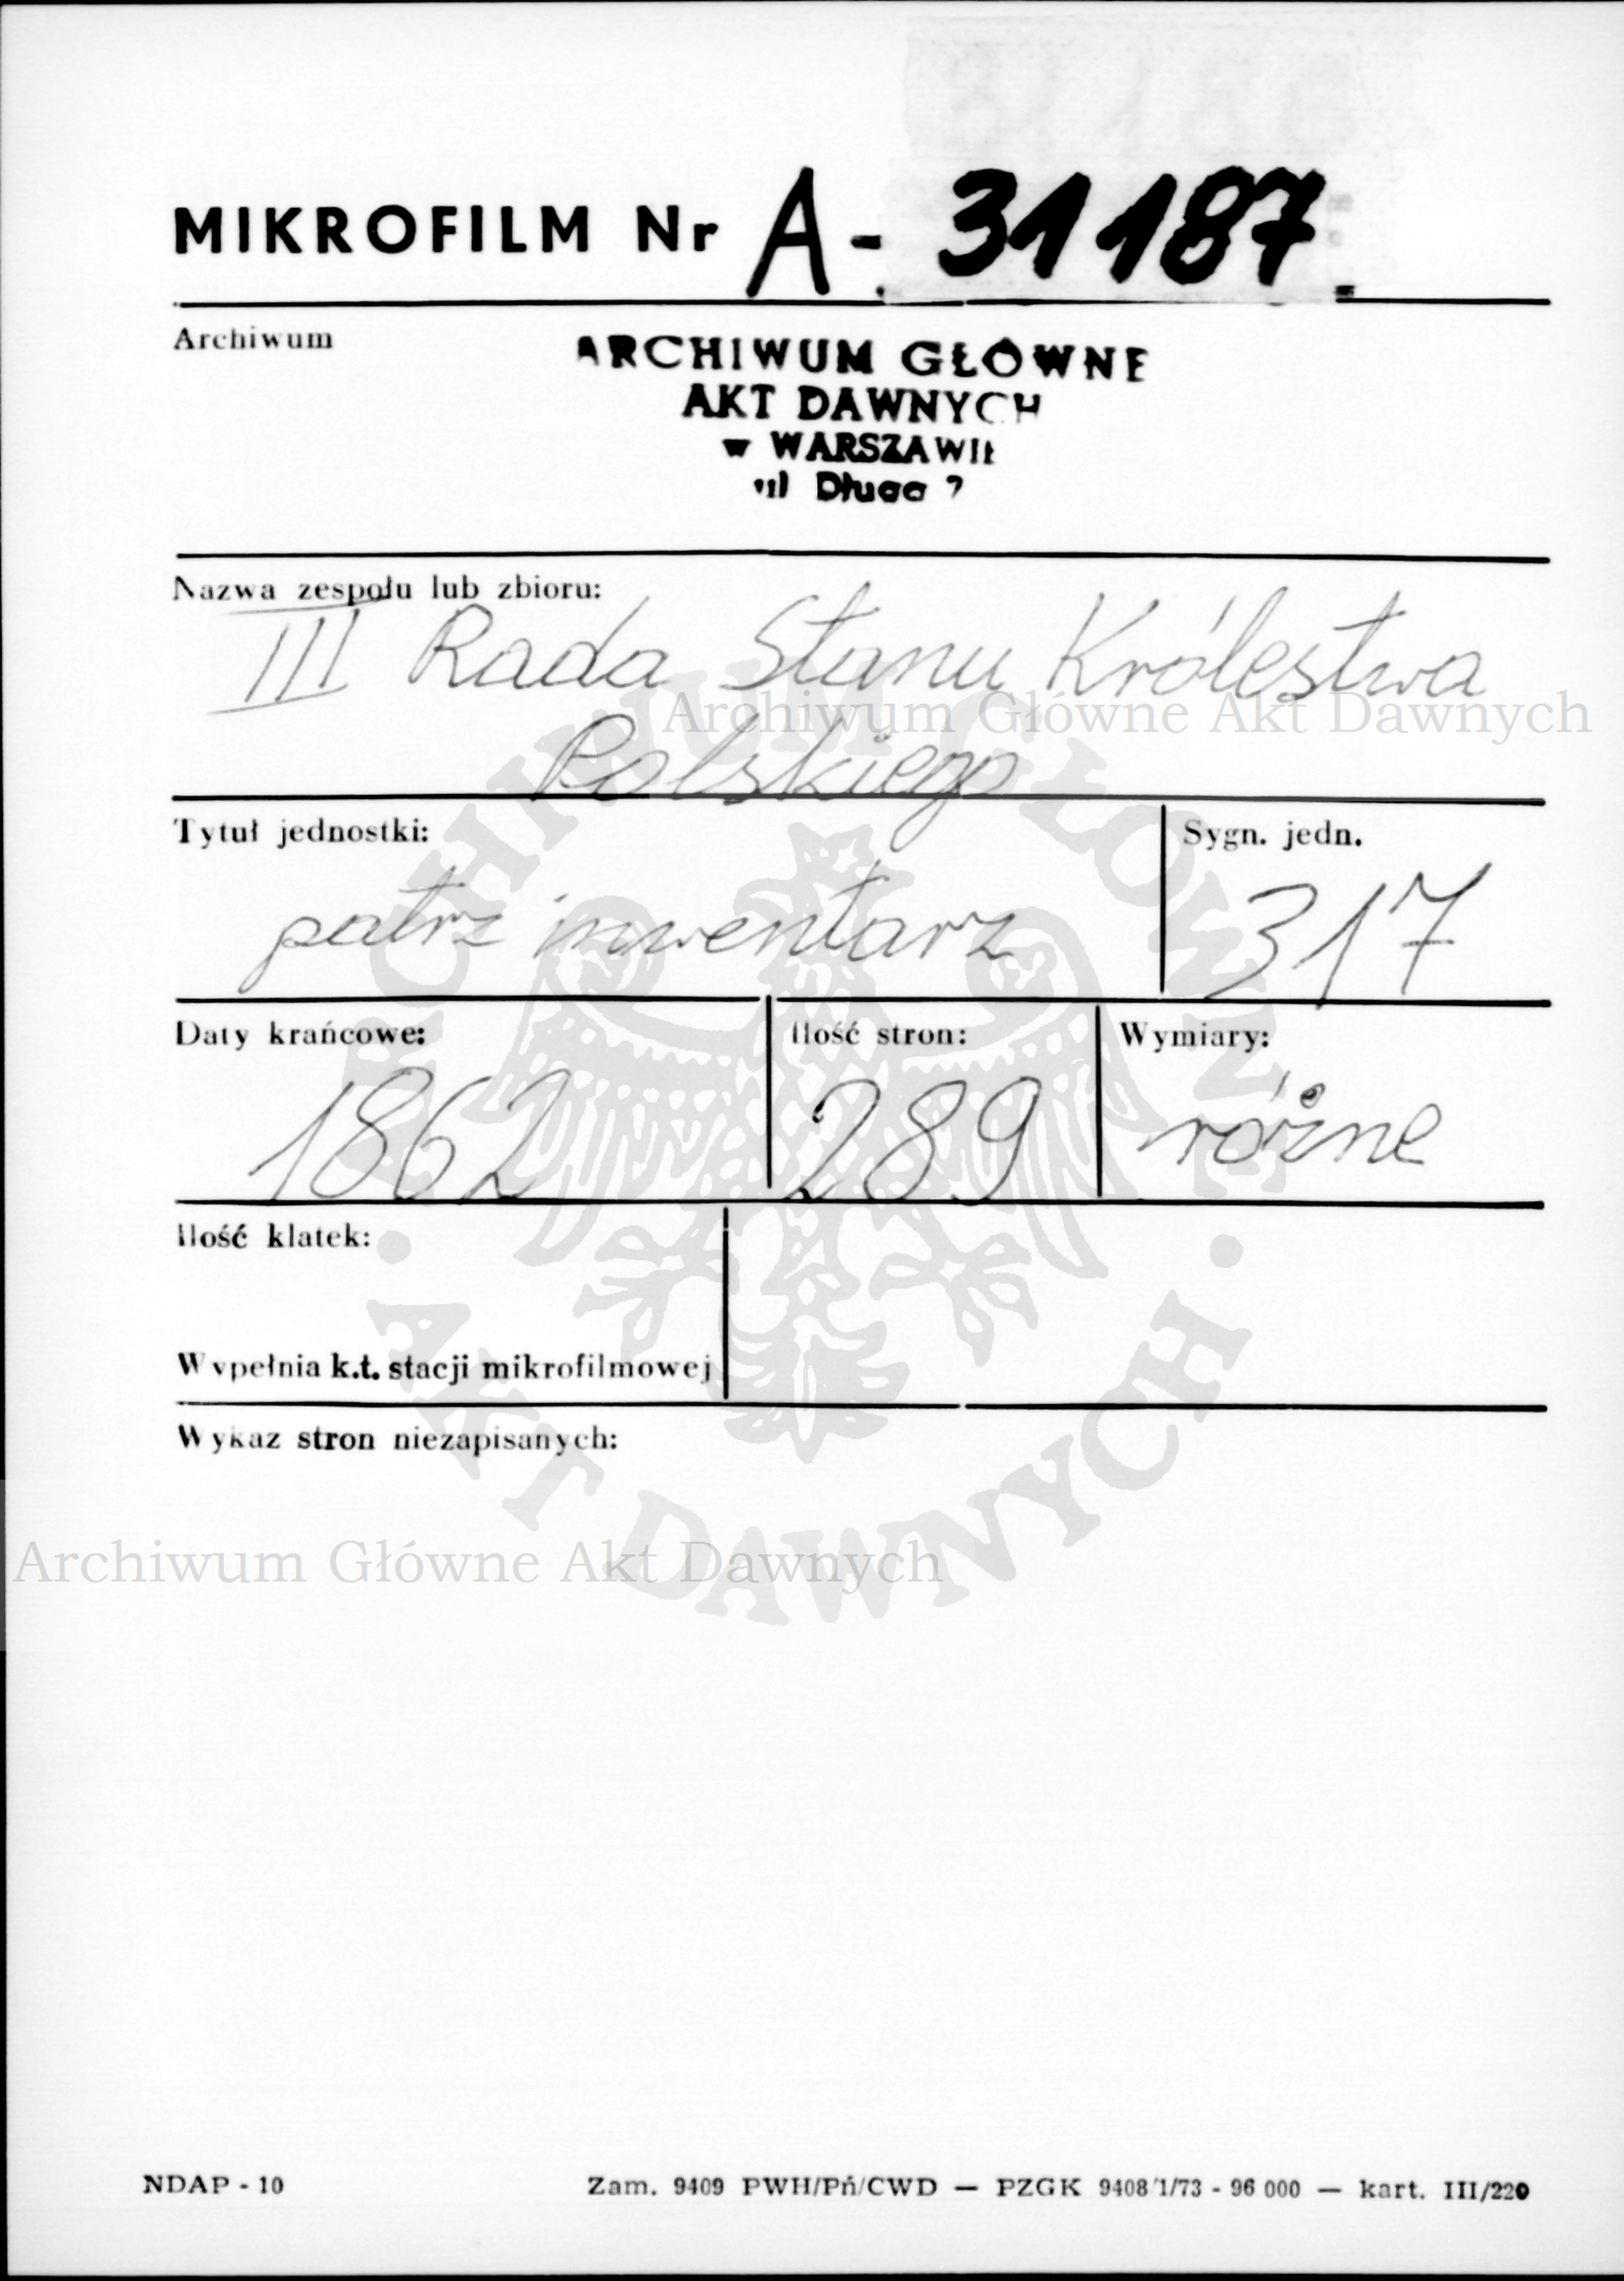 MIKROFILM Nr A-31187
Archiwum
ARCHIWUM GŁÓWNE
AKT DAWNYCH
w WARSZAWIE
ul Długa 7
Nazwa zespołu lub zbioru:
III Rada Stanu Królestwa
Archiwum Główne Akt Dawnych
Polskiego
Tytuł jednostki:
Sygn. jedn.
patrz inwentarz
317
Daty krańcowe:
Ilość stron:
Wymiary:
1862
289
różne
Ilość klatek:
Wypełnia k.t. stacji mikrofilmowej
Wykaz stron niezapisanych:
ARCHIWUM GŁÓWNE
· AKT DAWNYCH ·
Archiwum Główne Akt Dawnych
NDAP - 10
Zam. 9409 PWH/Pń/CWD — PZGK 9408/1/73 - 96 000 — kart. III/220